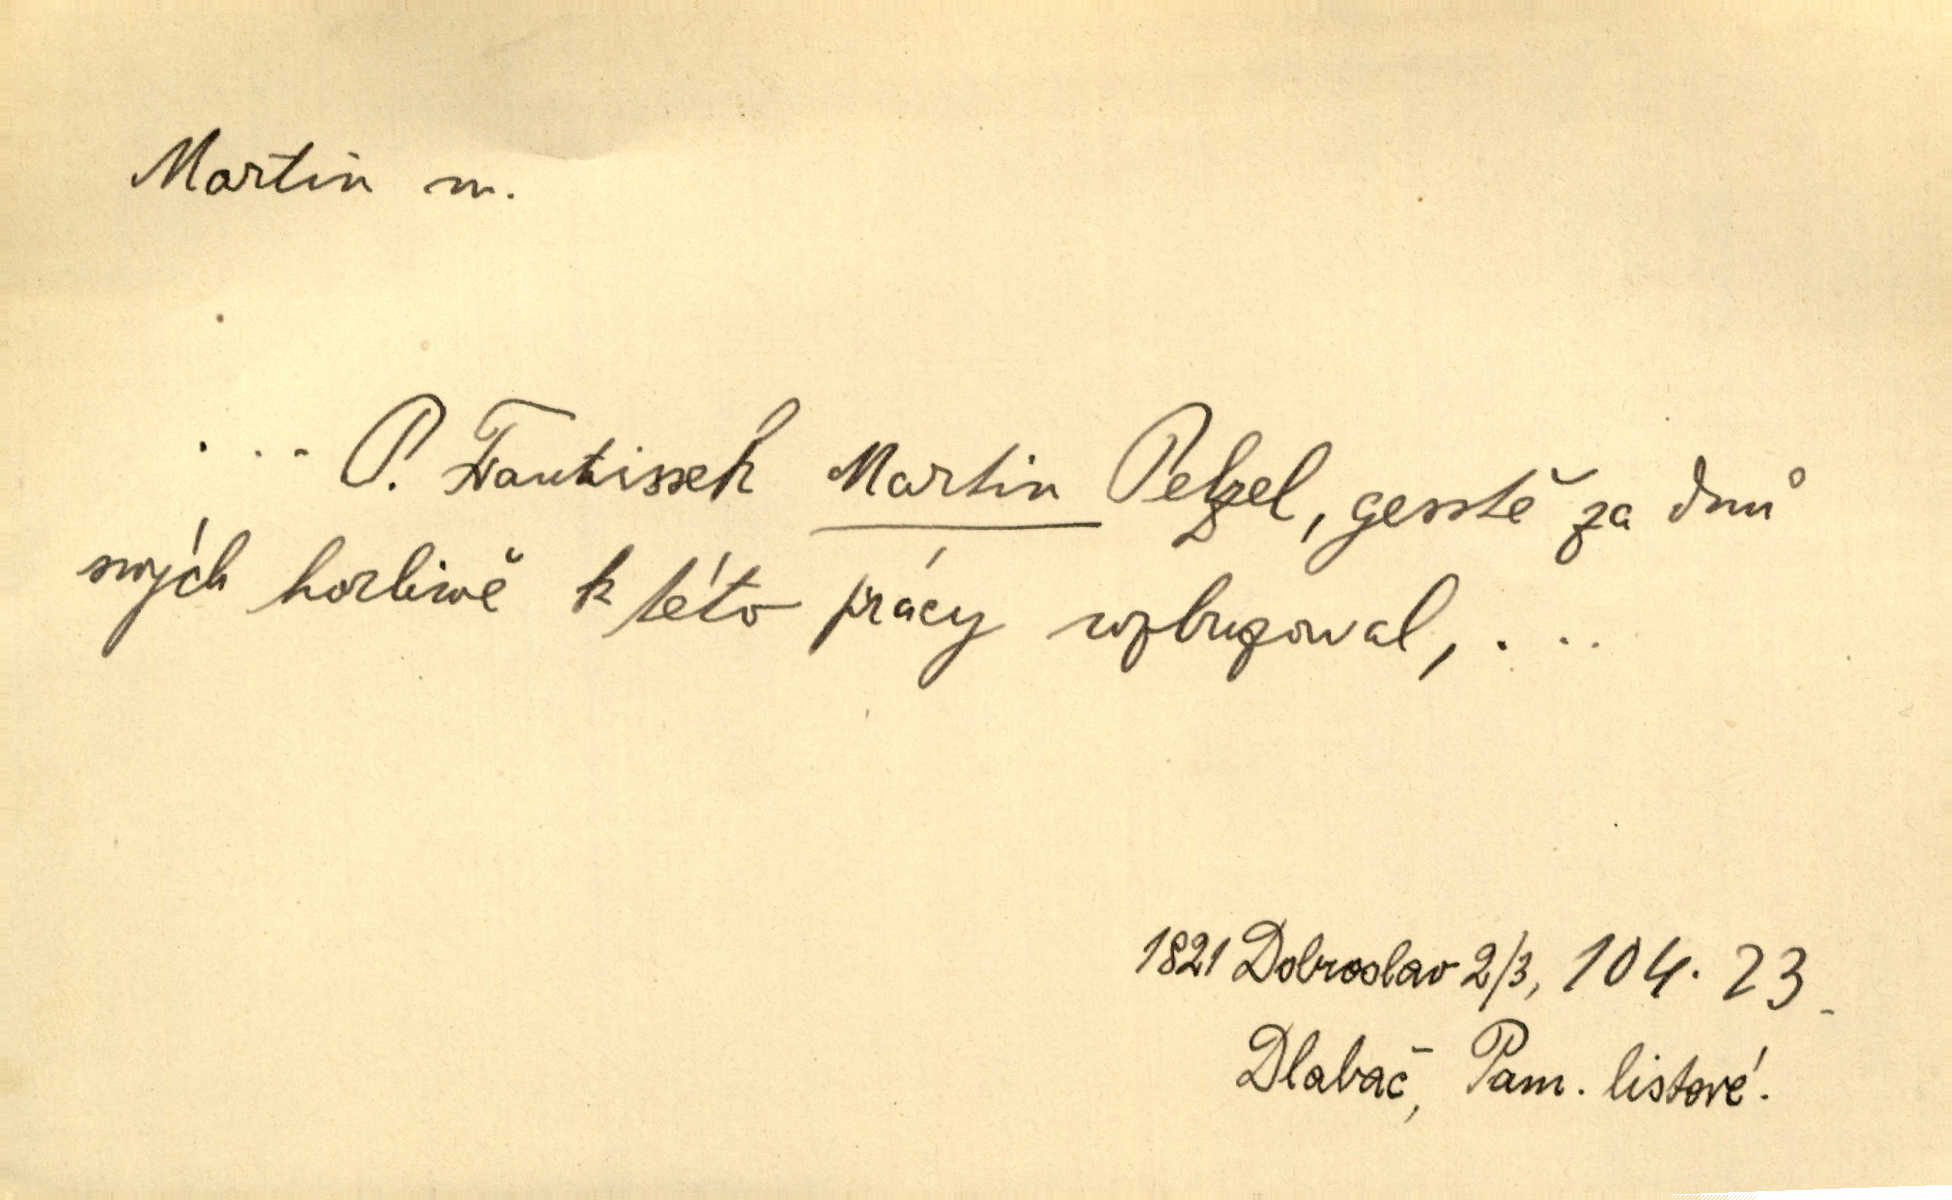 Martin m.
... P. Frantissek Martin Pelzel, gesstě za dnů
swých horliwě k této prácy wzbuzowal, ...
1821 Dobroslav 2/3, 104. 23
Dlabač, Pam. listové.